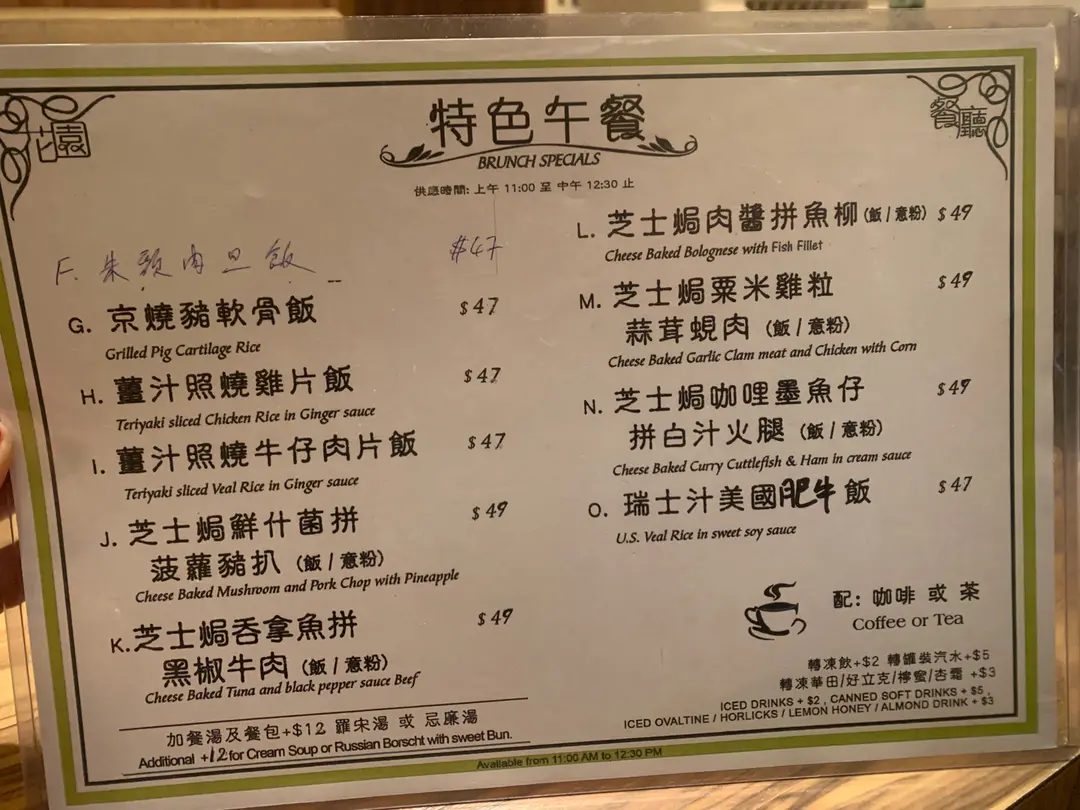 花園
餐廳
特色午餐
BRUNCH SPECIALS
供應時間: 上午 11:00 至 中午 12:30 止
F. 朱頸肉旦飯 $47
G. 京燒豬軟骨飯 $47
Grilled Pig Cartilage Rice
H. 薑汁照燒雞片飯 $47
Teriyaki sliced Chicken Rice in Ginger sauce
I. 薑汁照燒牛仔肉片飯 $47
Teriyaki sliced Veal Rice in Ginger sauce
J. 芝士焗鮮什菌拼 $49
菠蘿豬扒 (飯 / 意粉)
Cheese Baked Mushroom and Pork Chop with Pineapple
K. 芝士焗吞拿魚拼 $49
黑椒牛肉 (飯 / 意粉)
Cheese Baked Tuna and black pepper sauce Beef
加餐湯及餐包+$12 羅宋湯 或 忌廉湯
Additional +12 for Cream Soup or Russian Borscht with sweet Bun.
L. 芝士焗肉醬拼魚柳 (飯 / 意粉) $49
Cheese Baked Bolognese with Fish Fillet
M. 芝士焗粟米雞粒 $49
蒜茸蜆肉 (飯 / 意粉)
Cheese Baked Garlic Clam meat and Chicken with Corn
N. 芝士焗咖哩墨魚仔 $49
拼白汁火腿 (飯 / 意粉)
Cheese Baked Curry Cuttlefish & Ham in cream sauce
O. 瑞士汁美國肥牛飯 $47
U.S. Veal Rice in sweet soy sauce
配: 咖啡 或 茶
Coffee or Tea
轉凍飲+$2 轉罐裝汽水+$5
轉凍華田/好立克/檸蜜/杏霜 +$3
ICED DRINKS + $2 , CANNED SOFT DRINKS + $5 ,
ICED OVALTINE / HORLICKS / LEMON HONEY / ALMOND DRINK + $3
Available from 11:00 AM to 12:30 PM